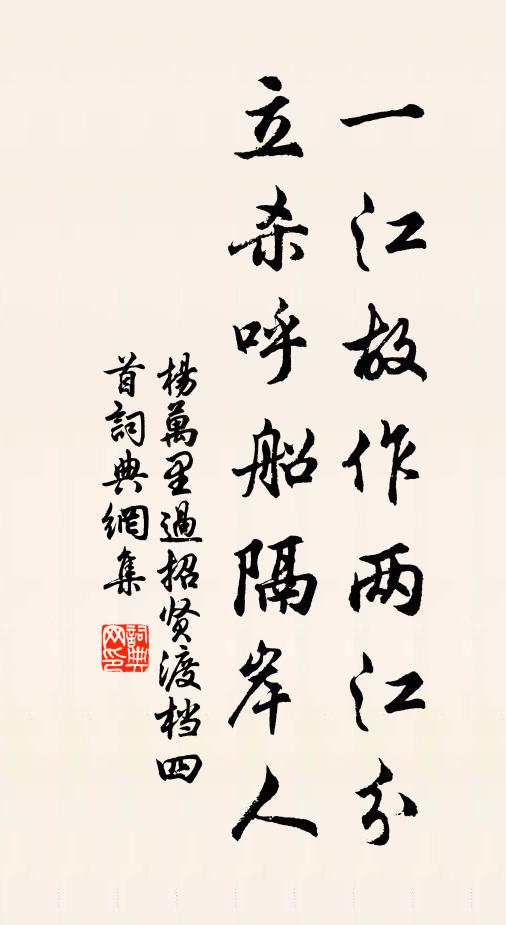 一江故作两江分
立杀呼船隔岸人
楊萬里過招贤渡档四
首詞典網集
詞典
网印